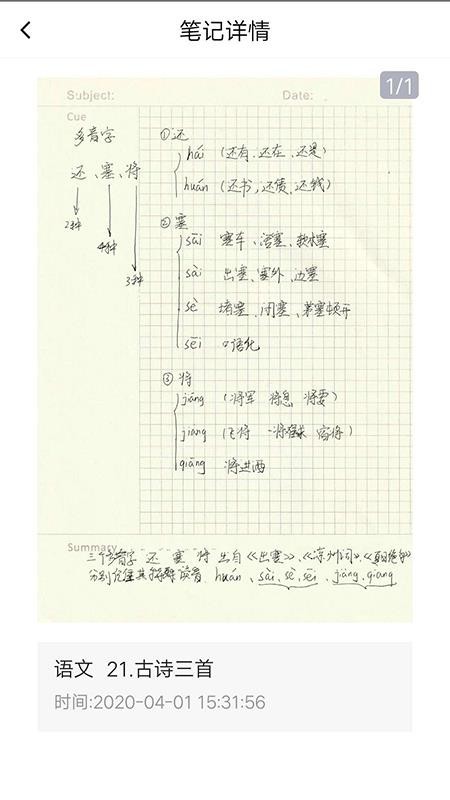 笔记详情
1/1
Subject:
Date:
Cue
多音字
还、塞、将
2种
4种
3种
①还
hái (还有、还在、还是)
huán (还书，还债、还钱)
②塞
sāi 塞车、活塞、软木塞
sài 出塞、塞外、边塞
sè 堵塞、闭塞、茅塞顿开
sēi 口语化
③将
jiāng (将军 将息 将要)
jiàng (飞将 一将
qiāng 将进酒
Summary
三个多音字 还 塞 将 出自《出塞》、《凉州词》、《夏日绝句》
分别
读音 huán、sài、sè、sēi、jiāng、qiang
语文 21.古诗三首
时间:2020-04-01 15:31:56